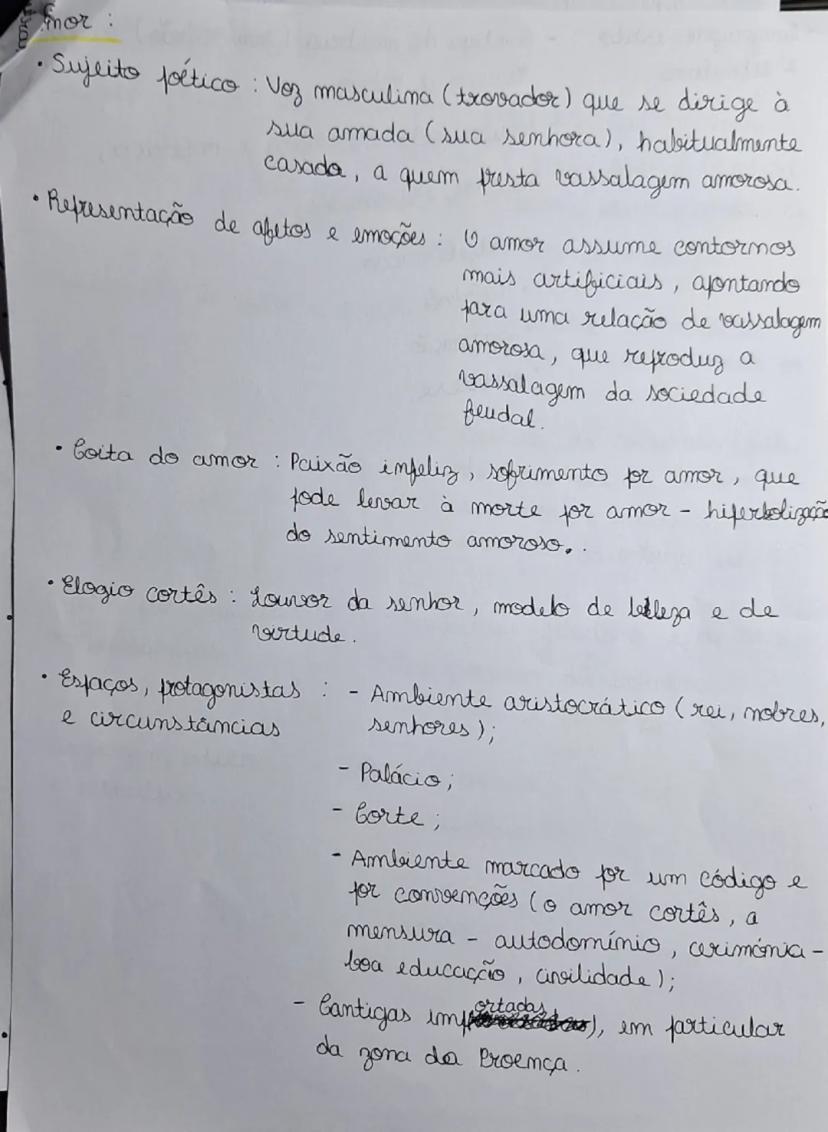 Amor :
• Sujeito poético : Voz masculina (trovador) que se dirige à
sua amada (sua senhora), habitualmente
casada, a quem presta vassalagem amorosa.
• Representação de afetos e emoções : O amor assume contornos
mais artificiais, apontando
para uma relação de vassalagem
amorosa, que reproduz a
vassalagem da sociedade
feudal.
• Coita do amor : Paixão infeliz, sofrimento por amor, que
pode levar à morte por amor - hiperbolização
do sentimento amoroso..
• Elogio cortês : Louvor da senhor, modelo de beleza e de
virtude.
• Espaços, protagonistas : - Ambiente aristocrático (rei, nobres,
e circunstâncias senhores);
- Palácio;
- Corte;
- Ambiente marcado por um código e
por convenções (o amor cortês, a
mensura - autodomínio, cerimónia-
boa educacção, civilidade);
- Cantigas importadas), em particular
da zona da Proença.